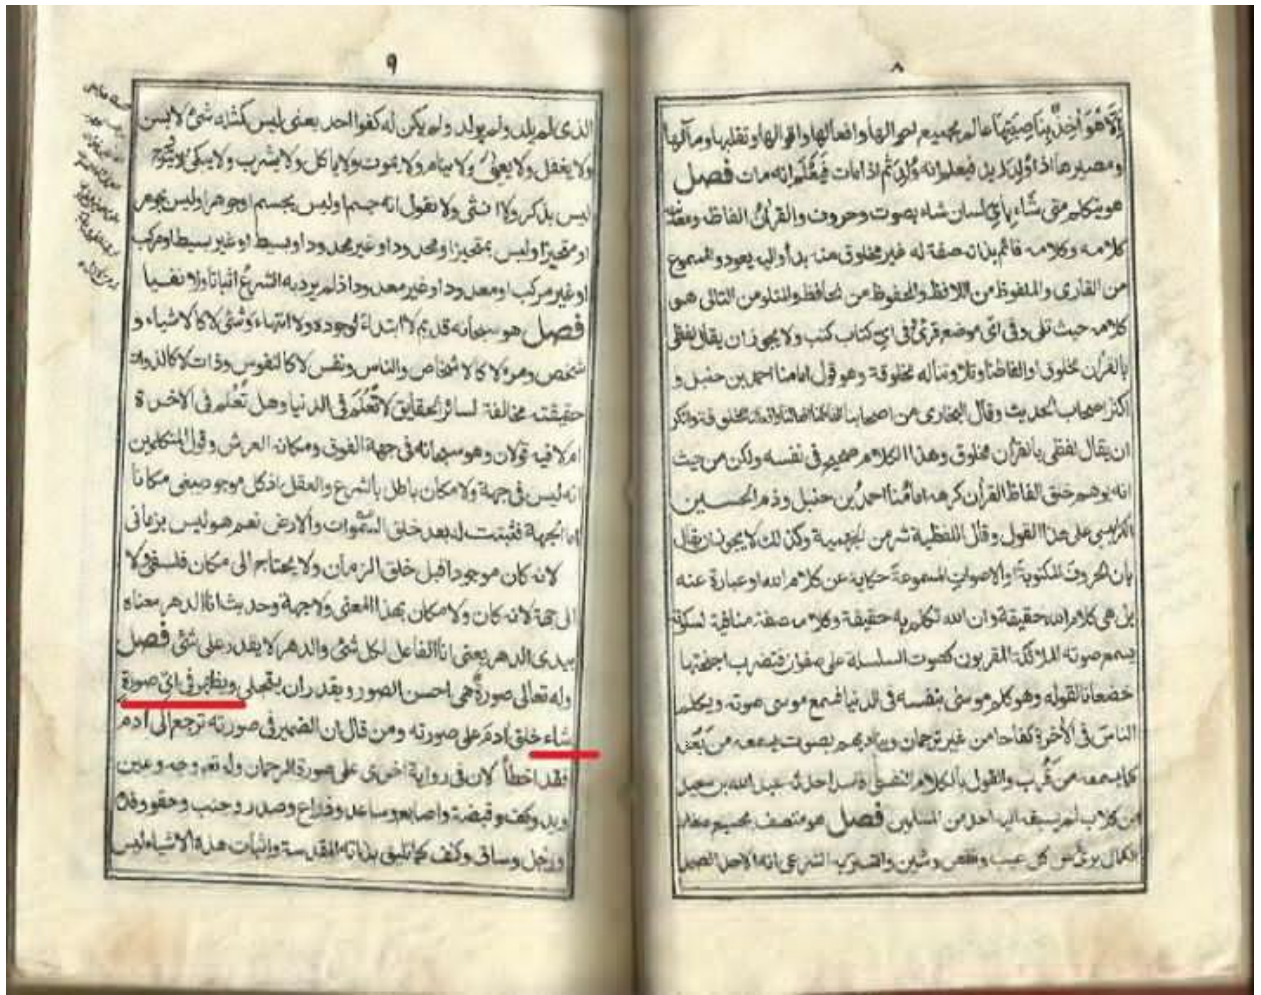 ٨
إلا هو آخذ بناصيتها عالم بجميع احوالها وافعالها واقوالها وتقلبها ومآلها
ومصيرها اذا ولد زيد فيعلم انه ولد ثم اذا مات فيعلم انه مات فصل
هو يتكلم متى شاء باي لسان شاء بصوت وحروف والقرآن الفاظه ومعناه
كلامه وكلامه قائم بذاته صفة له غير مخلوق منه بدأ واليه يعود والمسموع
من القارى والملفوظ من اللافظ والمحفوظ من الحافظ والمتلو من التالى هو
كلامه حيث تلى وفى اى موضع قرئ وفى اي كتاب كتب ولا يجوز ان يقال لفظى
بالقرآن مخلوق او الفاظنا وتلاوتنا له مخلوقة وهو قول امامنا احمد بن حنبل و
اكثر اصحاب الحديث وقال البخارى من اصحابنا الفاظنا افعالنا وافعالنا مخلوقة وانكر
ان يقال لفظى بالقرآن مخلوق وهذا الكلام صحيح فى نفسه ولكن من حيث
انه يوهم خلق الفاظ القرآن كرهه امامنا احمد بن حنبل وذم الحسين
الكرابيسى على هذا القول وقال اللفظية شر من الجهمية وكذلك لا يجوز ان يقال
بان الحروف المكتوبة او الاصوات المسموعة حكاية عن كلام الله او عبارة عنه
بل هى كلام الله حقيقة وان الله تكلم به حقيقة وكلامه صفة منافية لسكوته
يسمع صوته الملائكة المقربون كصوت السلسلة على صفوان فتضرب اجنحتها
خضعانا لقوله وهو كلم موسى بنفسه فى الدنيا فسمع موسى صوته ويكلم
الناس فى الآخرة كفاحا من غير ترجمان ويناديهم بصوت يسمعه من بعد
كما يسمعه من قرب والقول بالكلام النفسى فاسد احدثه عبد الله بن سعيد
بن كلاب لم يسبقه اليه احد من المسلمين فصل هو متصف بجميع صفات
الكمال برئ من كل عيب ونقص وشين والتنزيه الشرعى انه الاحد الصمد
٩
الذى لم يلد ولم يولد ولم يكن له كفوا احد يعنى ليس كمثله شئ لا يسن
ولا يغفل ولا يعيى ولا ينام ولا يموت ولا ياكل ولا يشرب ولا يبكى
ليس بذكر ولا انثى ولا نقول انه جسم او ليس بجسم او جوهر او ليس بجوهر
او متحيز او ليس بمتحيز او محدود او غير محدود او بسيط او غير بسيط او مركب
او غير مركب او معدود او غير معدود اذ لم يرد به الشرع اثباتا ولا نفيا
فصل هو سبحانه قديم لا ابتداء لوجوده ولا انتهاء وشئ لا كالاشياء و
شخص ومرء لا كالاشخاص والناس ونفس لا كالنفوس وذات لا كالذوات
حقيقته مخالفة لسائر الحقايق لا تعلم فى الدنيا وهل تعلم فى الآخرة
ام لا فيه قولان وهو سبحانه فى جهة الفوق ومكانه العرش وقول المتكلمين
انه ليس فى جهة ولا مكان باطل بالشرع والعقل اذ كل موجود يبغى مكانا
اما الجهة فثبتت له بعد خلق السموات والارض نعم هو ليس بزمانى
لانه كان موجودا قبل خلق الزمان ولا يحتاج الى مكان فلسفى ولا
الى جهة لانه كان ولا مكان بهذا المعنى ولا جهة وحديث انا الدهر معناه
بيدى الدهر يعنى انا الفاعل لكل شئ والدهر لا يقدر على شئ فصل
وله تعالى صورة هى احسن الصور ويقدر ان يتجلى ويظهر فى اى صورة
شاء خلق آدم على صورته ومن قال ان الضمير فى صورته ترجع الى آدم
فقد اخطأ لان فى رواية اخرى على صورة الرحمان وله تع وجه وعين
ويد وكف وقبضة واصابع وساعد وذراع وصدر وجنب وحقو وقدم
ورجل وساق وكنف كما تليق بذاته المقدسة واثبات هذه الاشياء ليس